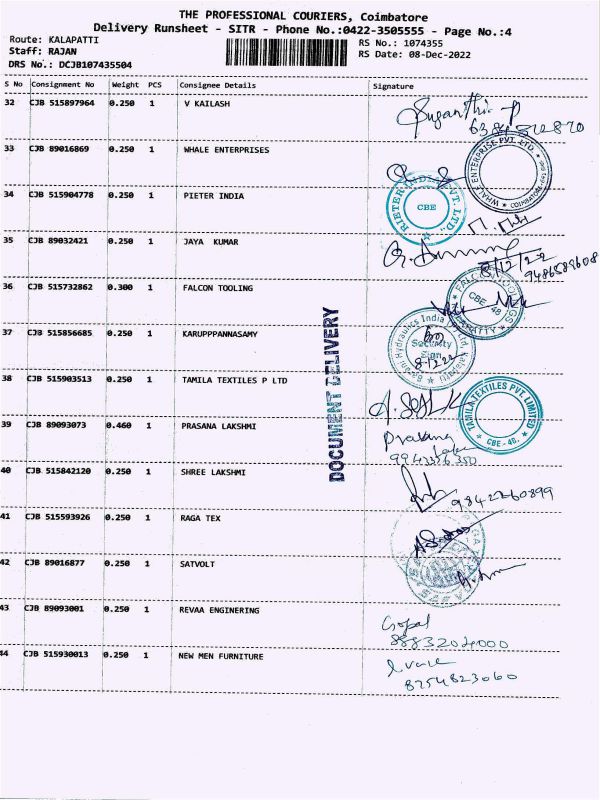 THE PROFESSIONAL COURIERS, Coimbatore
Delivery Runsheet - SITR - Phone No.:0422-3505555 - Page No.:4
Route: KALAPATTI
RS No.: 1074355
Staff: RAJAN
RS Date: 08-Dec-2022
DRS No.: DCJB107435504
S No Consignment No Weight PCS Consignee Details Signature
32 CJB 515897964 0.250 1 V KAILASH
33 CJB 89016869 0.250 1 WHALE ENTERPRISES
WHALE ENTERPRISE PVT. LTD.
34 CJB 515904778 0.250 1 PIETER INDIA
RIETER INDIA PVT. LTD.
CBE
35 CJB 89032421 0.250 1 JAYA KUMAR
8/12/22
9486585608
36 CJB 515732862 0.300 1 FALCON TOOLING
FALCON TOOLINGS
CBE - 48
37 CJB 515856685 0.250 1 KARUPPPANNASAMY
Hydraulics India
Security
Sign
DOCUMENT DELIVERY
38 CJB 515903513 0.250 1 TAMILA TEXTILES P LTD
TAMILA TEXTILES PVT. LIMITED
CBE - 48.
39 CJB 89093073 0.460 1 PRASANA LAKSHMI
Prasana
40 CJB 515842120 0.250 1 SHREE LAKSHMI
9842260899
41 CJB 515593926 0.250 1 RAGA TEX
42 CJB 89016877 0.250 1 SATVOLT
43 CJB 89093001 0.250 1 REVAA ENGINERING
Gopal
44 CJB 515930013 0.250 1 NEW MEN FURNITURE
8754823060